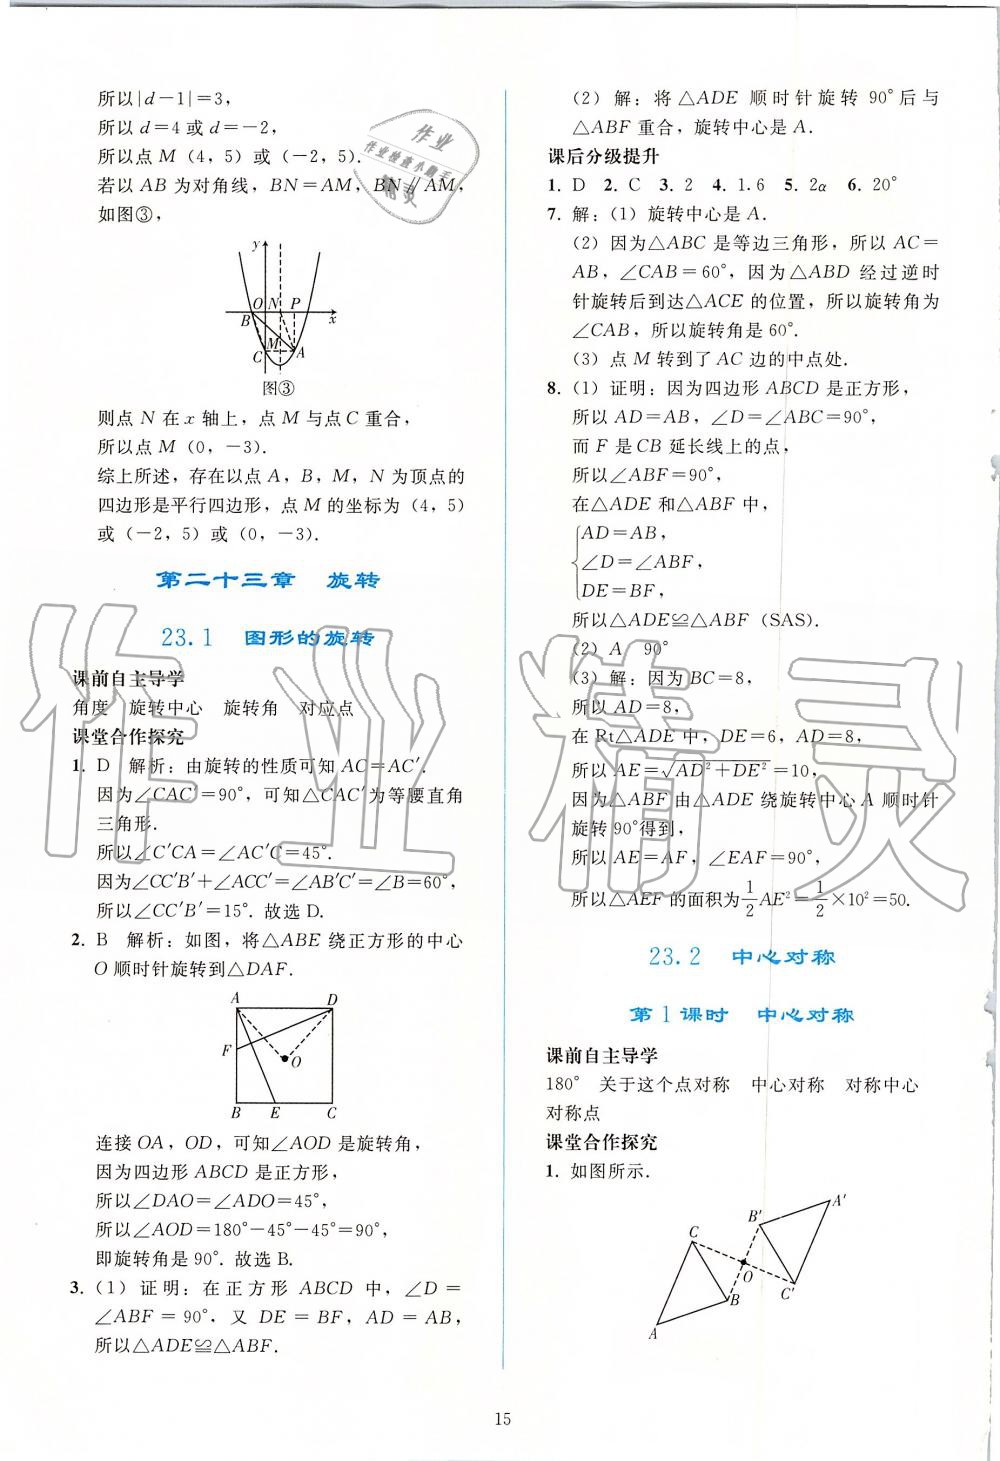 所以|d－1|＝3，
所以 d＝4 或 d＝－2，
所以点 M（4，5）或（－2，5）．
若以 AB 为对角线，BN＝AM，BN∥AM，
如图③，
y
O N P
B x
M
C A
图③
则点 N 在 x 轴上，点 M 与点 C 重合，
所以点 M（0，－3）．
综上所述，存在以点 A，B，M，N 为顶点的
四边形是平行四边形，点 M 的坐标为（4，5）
或（－2，5）或（0，－3）．
第二十三章　旋转
23.1　图形的旋转
课前自主导学
角度　旋转中心　旋转角　对应点
课堂合作探究
1. D　解析：由旋转的性质可知 AC＝AC′．
因为∠CAC′＝90°，可知△CAC′为等腰直角
三角形．
所以∠C′CA＝∠AC′C＝45°．
因为∠CC′B′＋∠ACC′＝∠AB′C′＝∠B＝60°，
所以∠CC′B′＝15°．故选 D．
2. B　解析：如图，将△ABE 绕正方形的中心
O 顺时针旋转到△DAF．
A D
F O
B E C
连接 OA，OD，可知∠AOD 是旋转角，
因为四边形 ABCD 是正方形，
所以∠DAO＝∠ADO＝45°，
所以∠AOD＝180°－45°－45°＝90°，
即旋转角是 90°．故选 B．
3.（1）证明：在正方形 ABCD 中，∠D＝
∠ABF＝90°，又 DE＝BF，AD＝AB，
所以△ADE≌△ABF．
（2）解：将△ADE 顺时针旋转 90°后与
△ABF 重合，旋转中心是 A．
课后分级提升
1. D 2. C 3. 2 4. 1.6 5. 2α 6. 20°
7. 解：（1）旋转中心是 A．
（2）因为△ABC 是等边三角形，所以 AC＝
AB，∠CAB＝60°，因为△ABD 经过逆时
针旋转后到达△ACE 的位置，所以旋转角为
∠CAB，所以旋转角是 60°．
（3）点 M 转到了 AC 边的中点处．
8.（1）证明：因为四边形 ABCD 是正方形，
所以 AD＝AB，∠D＝∠ABC＝90°，
而 F 是 CB 延长线上的点，
所以∠ABF＝90°，
在△ADE 和△ABF 中，
AD＝AB，
∠D＝∠ABF，
DE＝BF，
所以△ADE≌△ABF（SAS）．
（2）A　90°
（3）解：因为 BC＝8，
所以 AD＝8，
在 Rt△ADE 中，DE＝6，AD＝8，
所以 AE＝√(AD²＋DE²)＝10，
因为△ABF 由△ADE 绕旋转中心 A 顺时针
旋转 90°得到，
所以 AE＝AF，∠EAF＝90°，
所以△AEF 的面积为1/2 AE²＝1/2×10²＝50．
23.2　中心对称
第 1 课时　中心对称
课前自主导学
180°　关于这个点对称　中心对称　对称中心
对称点
课堂合作探究
1. 如图所示．
A′
B′
C
O
C′
B
A
15
作业
作业检查小助手
作业精灵